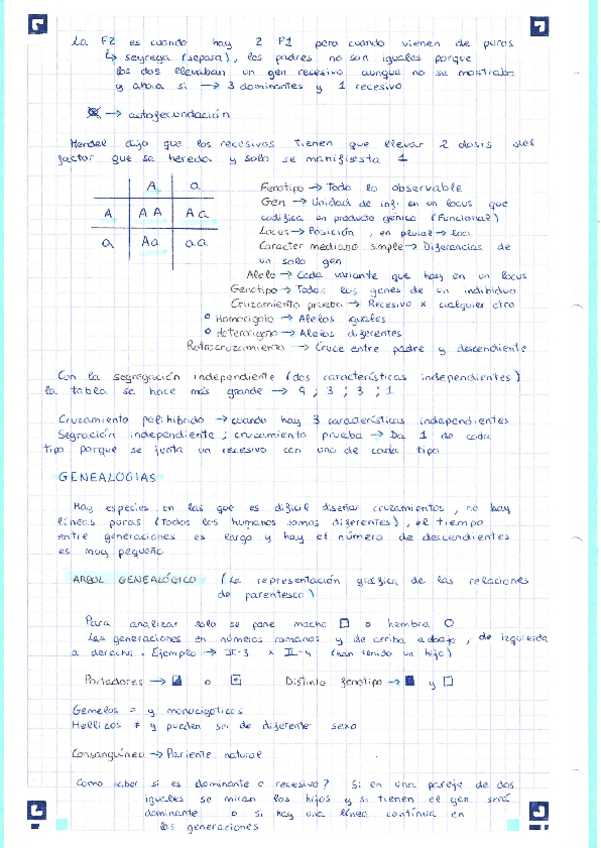 La F2 es cuando hay 2 F1 pero cuando vienen de puras
↳ segrega (separa), los padres no son iguales porque
los dos llevaban un gen recesivo aunque no se mostraba
y ahora si → 3 dominantes y 1 recesivo
→ autofecundación
Mendel dijo que los recesivos tienen que llevar 2 dosis del
factor que se hereda y solo se manifiesta 1
A a
A AA Aa
a Aa aa
Fenotipo → Todo lo observable
Gen → Unidad de inf. en un locus que
codifica un producto génico (funcional)
Locus → Posición, en plural → Loci
Caracter mediano simple → Diferencias de
un solo gen
Alelo → Cada variante que hay en un locus
Genotipo → Todos los genes de un individuo
Cruzamiento prueba → Recesivo x cualquier otro
Homocigoto → Alelos iguales
Heterocigoto → Alelos diferentes
Retrocruzamiento → Cruce entre padre y descendiente
Con la segregación independiente (dos características independientes)
la tabla se hace más grande → 9 ; 3 ; 3 ; 1
Cruzamiento polihibrido → cuando hay 3 características independientes
Segración independiente ; cruzamiento prueba → Da 1 de cada
tipo porque se junta un recesivo con uno de cada tipo
GENEALOGIAS
Hay especies en las que es dificil diseñar cruzamientos, no hay
líneas puras (Todos los humanos somos diferentes), el tiempo
entre generaciones es largo y hay el número de descendientes
es muy pequeño
ARBOL GENEALÓGICO (La representación gráfica de las relaciones
de parentesco)
Para analizar solo se pone macho □ o hembra ○
Las generaciones en números romanos y de arriba abajo, de izquierda
a derecha. Ejemplo → II-3 x II-4 (han tenido un hijo)
Portadores → o Distinto fenotipo → y
Gemelos = y monocigoticos
Mellizos ≠ y pueden ser de diferente sexo
Consanguíneo → Pariente natural
Como saber si es dominante o recesivo? Si en una pareja de dos
iguales se miran los hijos y si tienen el gen será
dominante o si hay una línea continua en
las generaciones